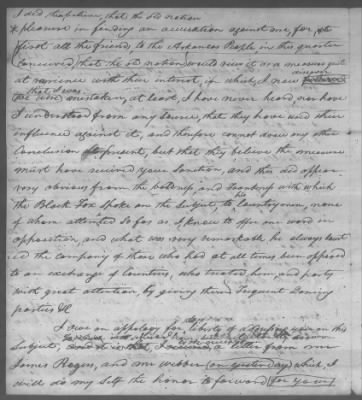 I did therefore, that the old nation
pleasure in finding an accusation against one, for, at
first all the friends to the Arkansas People in this quarter
Conceived, that the old nation would view it as a measure quite
at variance with their interest, if which, I now
that I was
mistaken, at least, I have never heard, nor have
I understood from any source, that they have used their
influence against it, and therefore cannot draw any other
Conclusion at present, but that they believe the measure
must have received your Sanction, and this did appear
very obvious from the boldness, and frankness with which
the Black Fox spoke on the Subject, to Countrymen, none
of whom attempted so far as I knew to offer one word in
opposition, and what was very remarkable he always courted
the company of those who had at all times been opposed
to an exchange of Countries, who treated him, and party
with great attention, by giving them frequent Dancing
parties &c
I owe an apology for liberty of addressing you on this
Subject, a letter from Mr
James Rogers, and Mr Webber (on yesterday) which, I
will do my self the honor to forward (for you)